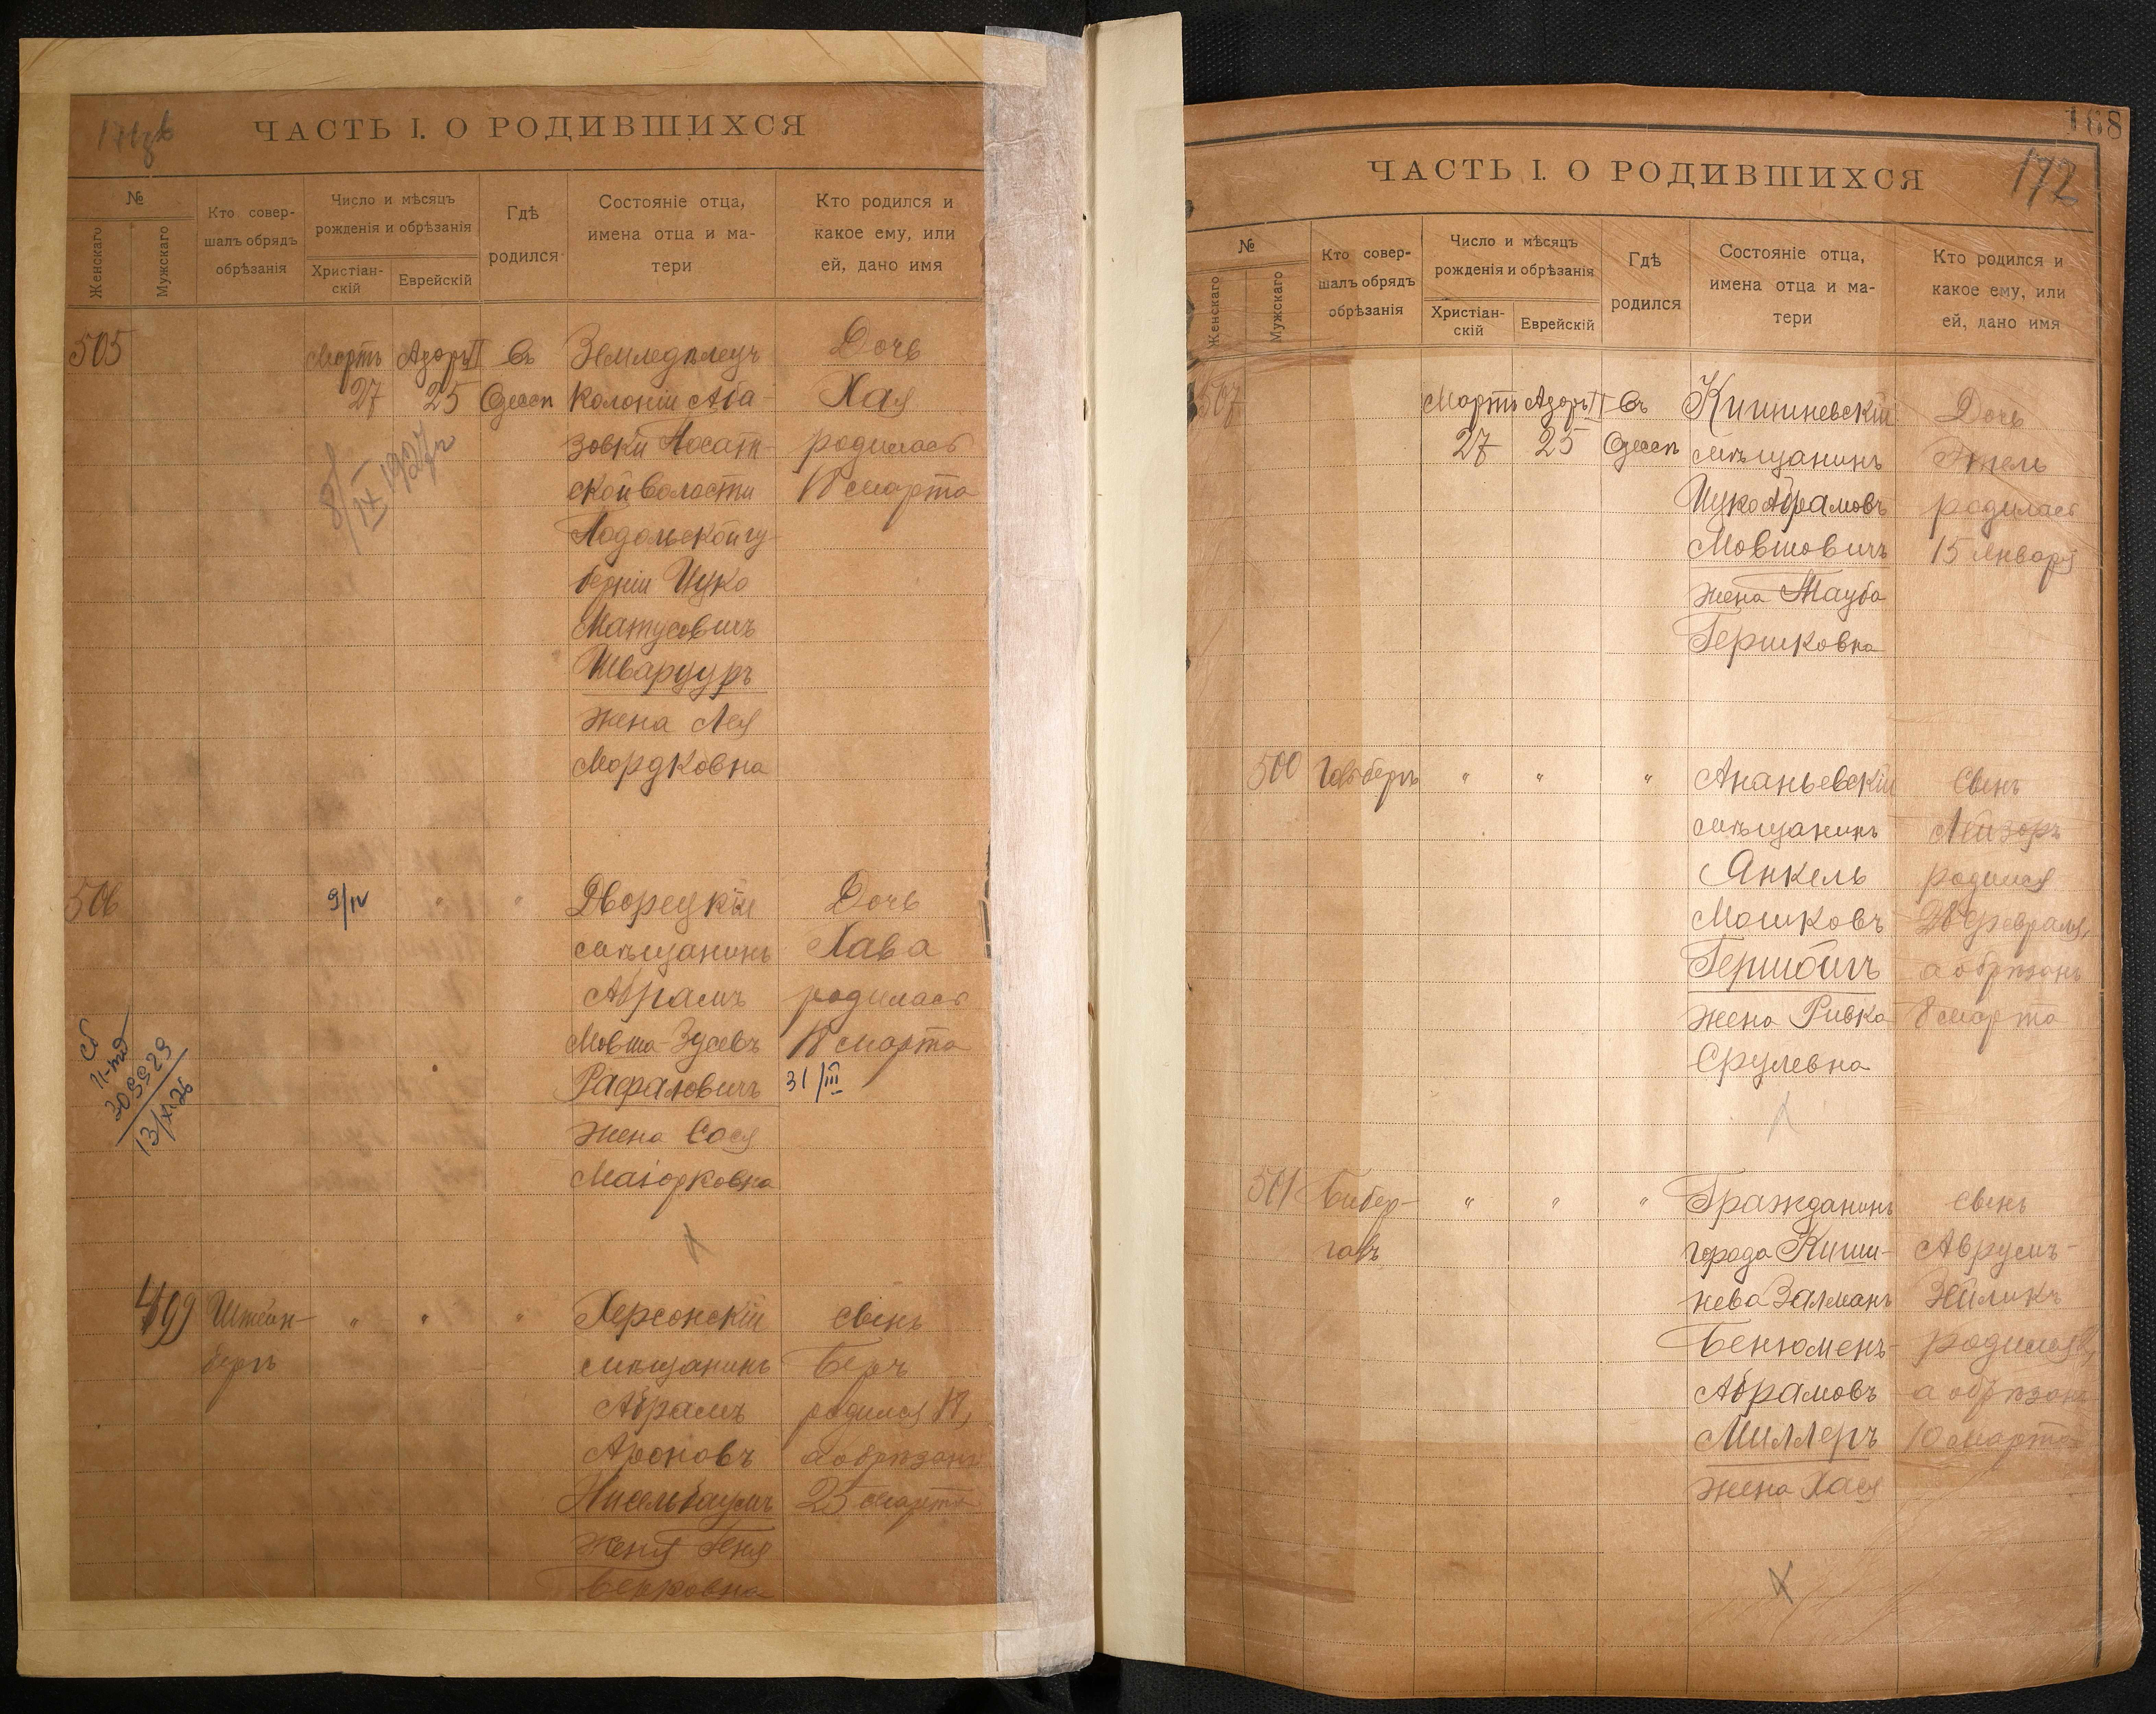 ЧАСТЬ I. О РОДИВШИХСЯ
№
Женскаго
Мужскаго
Кто совер-
шалъ обрядъ
обрѣзанія
Число и мѣсяцъ
рожденія и обрѣзанія
Христіан-
скій
Еврейскій
Гдѣ
родился
Состояніе отца,
имена отца и ма-
тери
Кто родился и
какое ему, или
ей, дано имя
505
Мартъ
27
Адоръ II
25
Въ
Одессѣ
Земледѣлецъ
колоніи Аба-
зовки
ской волости
Подольской гу-
берніи Цуко
Матусовичъ
Шварцуръ
жена Лея
Мордковна
Дочь
Хая
родилась
18 марта
8/IX 1927 г
506
9/IV
"
"
Дворецкій
мѣщанинъ
Абрамъ
Мовша-Зусевъ
Рафаловичъ
жена Сося
Маіорковна
Дочь
Хава
родилась
18 марта
31/III
309929
13/XI 26
499
Штейн-
бергъ
"
"
"
Херсонскій
мѣщанинъ
Абрамъ
Ароновъ
Нисельбаумъ
жена Геня
Берковна
сынъ
Беръ
родился 18,
а обрѣзанъ
25 марта
168
172
ЧАСТЬ I. О РОДИВШИХСЯ
№
Женскаго
Мужскаго
Кто совер-
шалъ обрядъ
обрѣзанія
Число и мѣсяцъ
рожденія и обрѣзанія
Христіан-
скій
Еврейскій
Гдѣ
родился
Состояніе отца,
имена отца и ма-
тери
Кто родился и
какое ему, или
ей, дано имя
507
Мартъ
27
Адоръ II
25
Въ
Одессѣ
Кишиневскій
мѣщанинъ
Цуко Абрамовъ
Мовшовичъ
жена Тауба
Гершковна
Дочь
Этель
родилась
15 января
500
Гольдбергъ
"
"
"
Ананьевскій
мѣщанинъ
Янкель
Мошковъ
Гершойгъ
жена Ривка
Срулевна
Сынъ
Лейзоръ
родился
28 февраля,
а обрѣзанъ
8 марта
501
Бибер-
галь
"
"
"
Гражданинъ
города Киши-
нева Залманъ
Бенюменъ-
Абрамовъ
Миллеръ
жена Хася
сынъ
Аврумъ-
Зейликъ
родился
а обрѣзанъ
10 марта